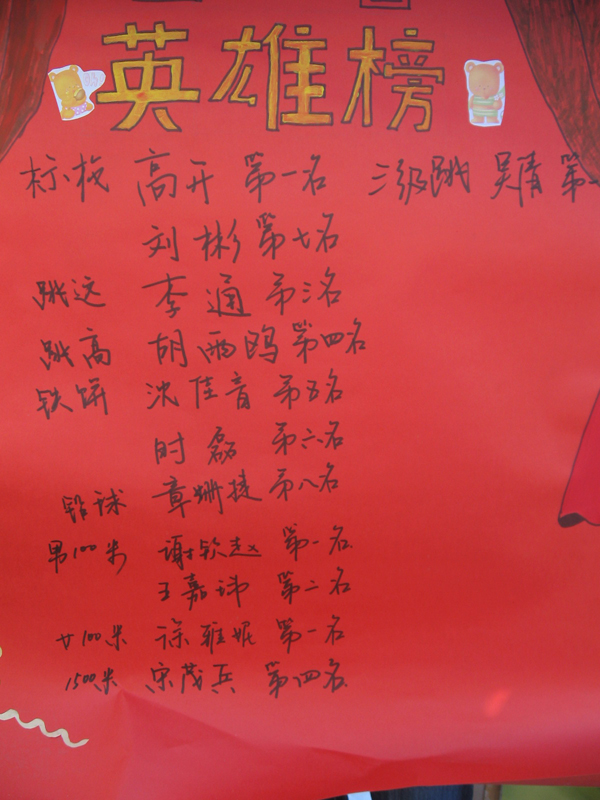 英雄榜
标枪 高开 第一名 三级跳 吴清 第一
刘彬 第七名
跳远 李通 第三名
跳高 胡雨鸥 第四名
铁饼 沈佳音 第五名
时磊 第六名
铅球 章姗捷 第八名
男100米 谢钦赵 第一名
王嘉玮 第二名
女100米 徐雅妮 第一名
1500米 宋茂兵 第四名